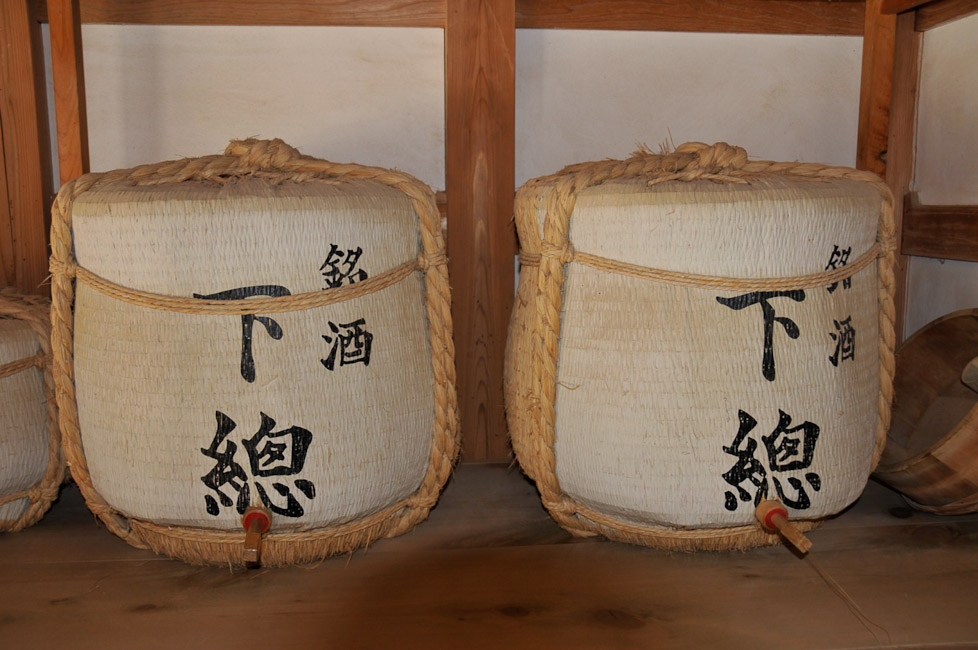 銘酒
下總
銘酒
下總